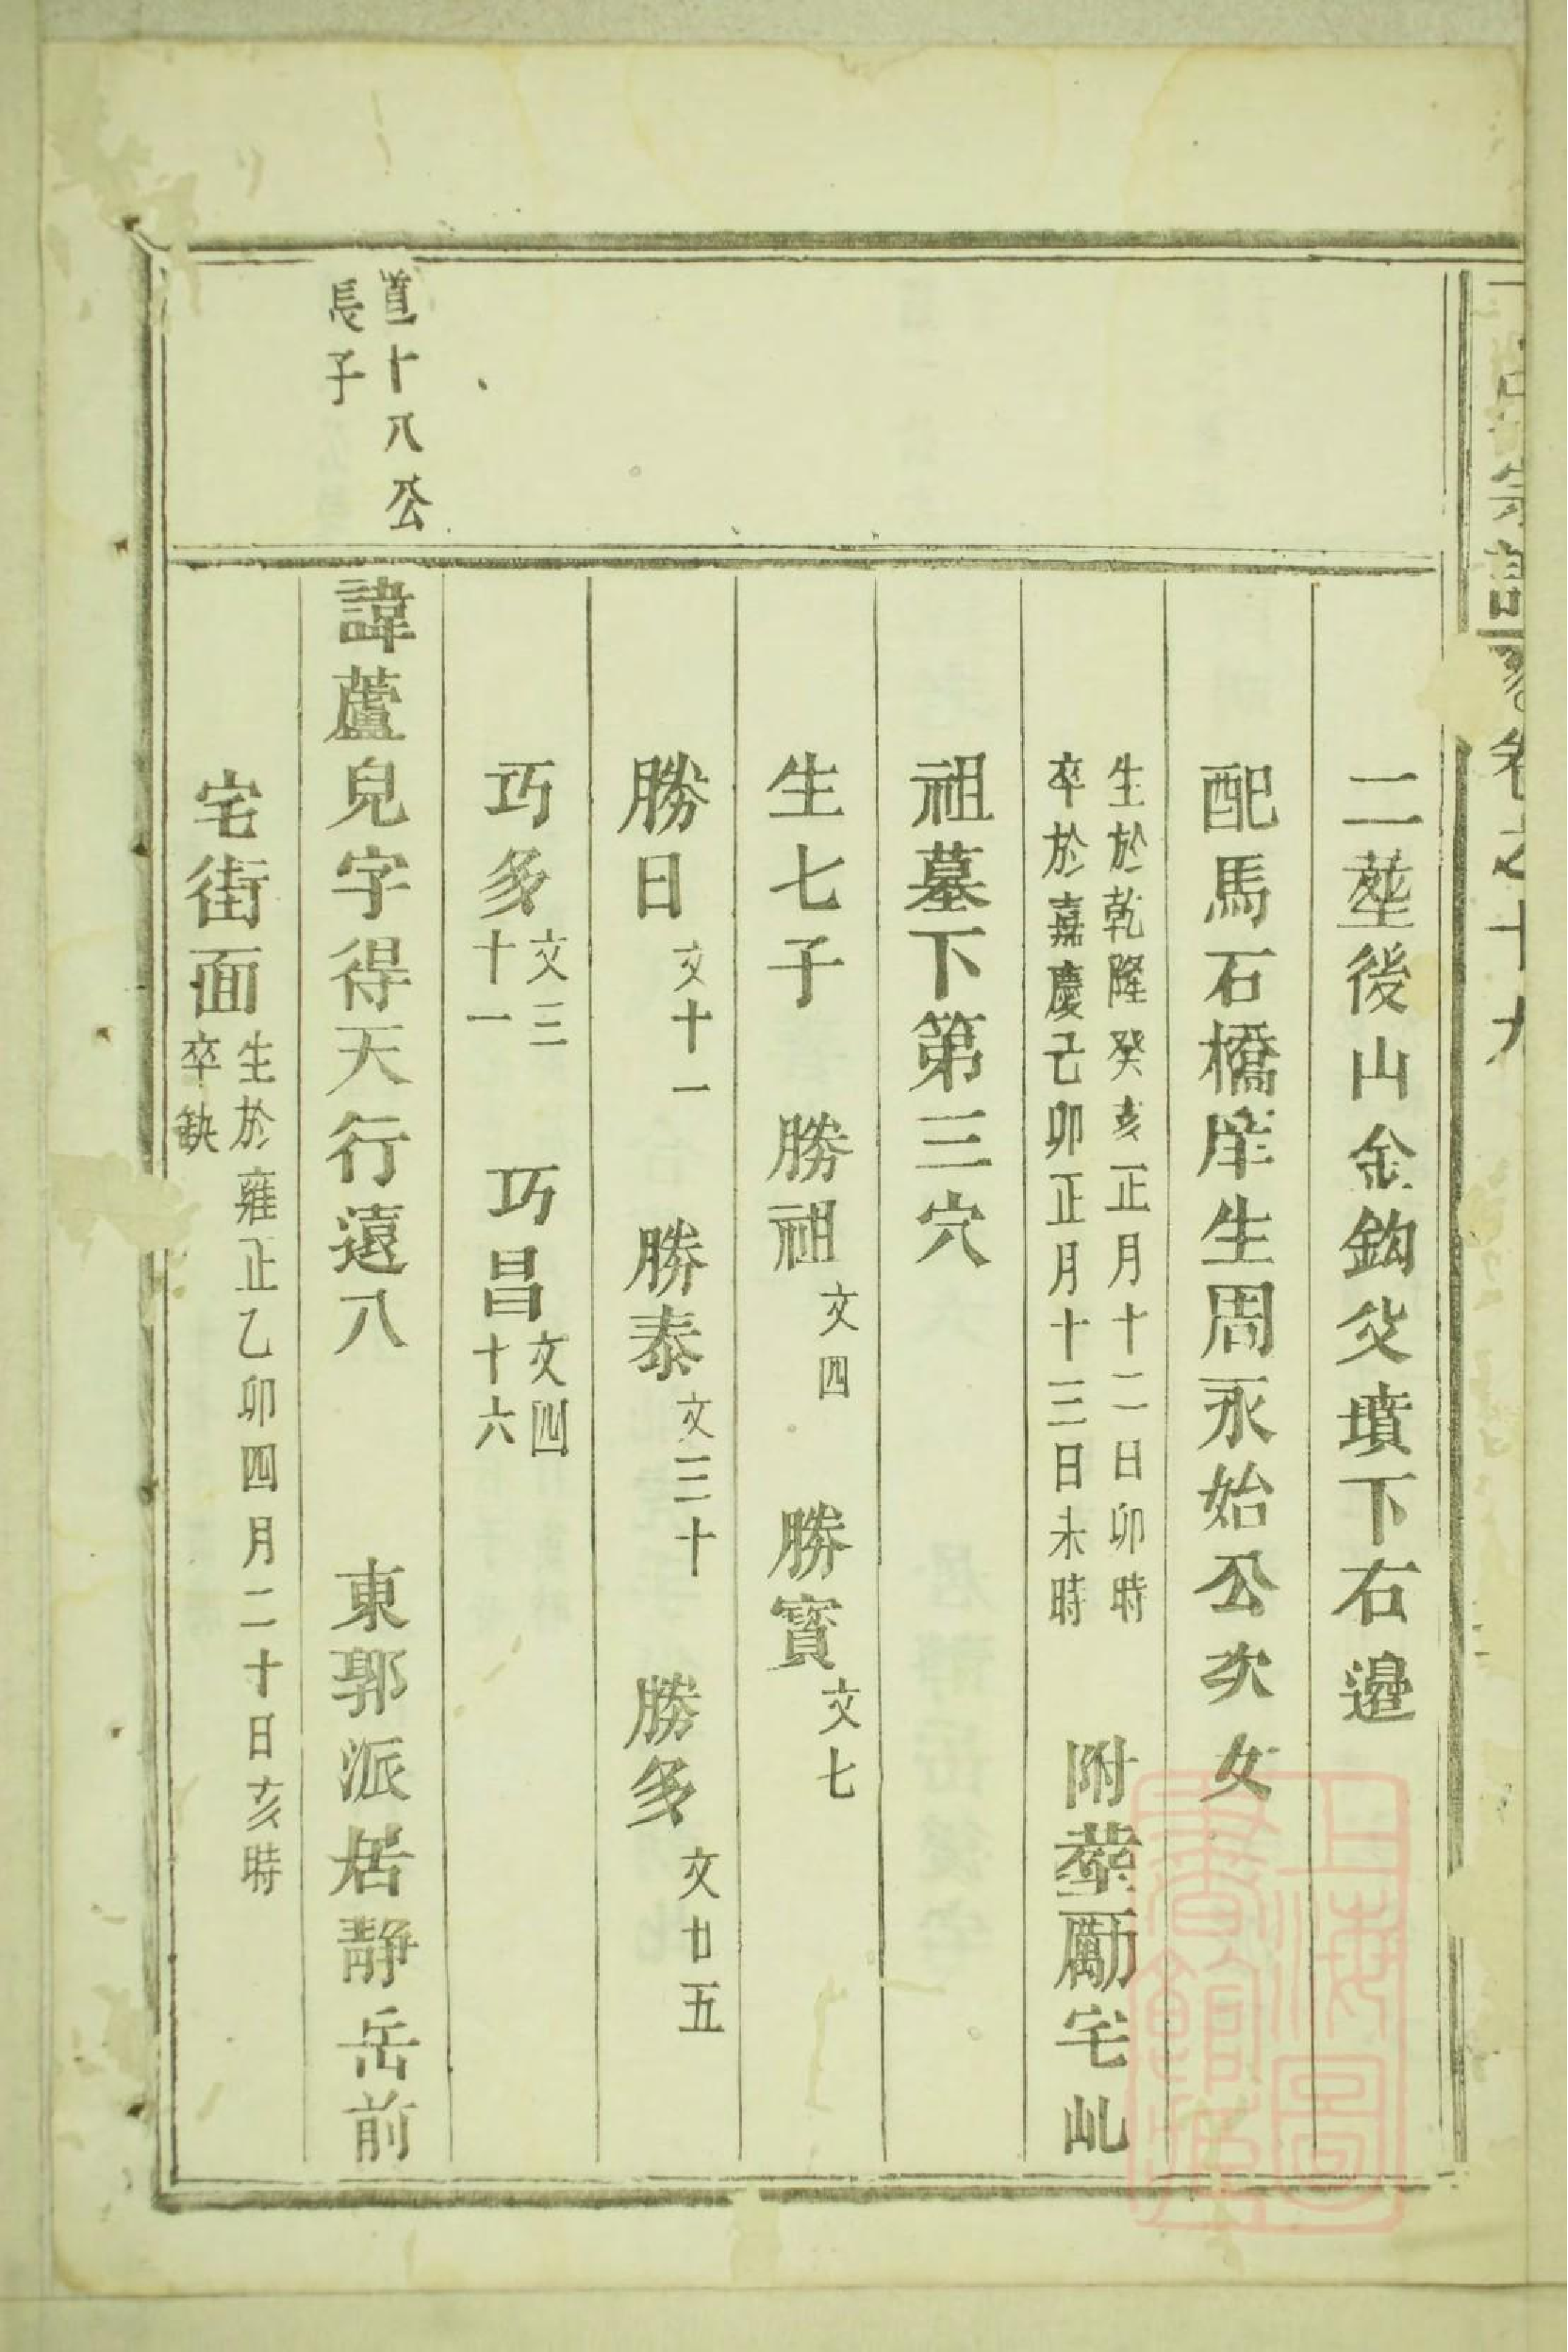 宗譜 卷之十九
二塟後山金鈎父墳下右邉
配馬石橋庠生周永始公次女
生於乾隆癸亥正月十二日卯時
卒於嘉慶己卯正月十三日未時
附塟勵宅屾
祖墓下第三穴
生七子 勝祖文四 勝寳文七
勝日文十一 勝泰文三十 勝多文廿五
巧多文三十一 巧昌文四十六
道十八公
長子
諱蘆兒字得天行遠八 東郭派居靜岳前
宅街面
生於雍正乙卯四月二十日亥時
卒缺
上海圖書館藏